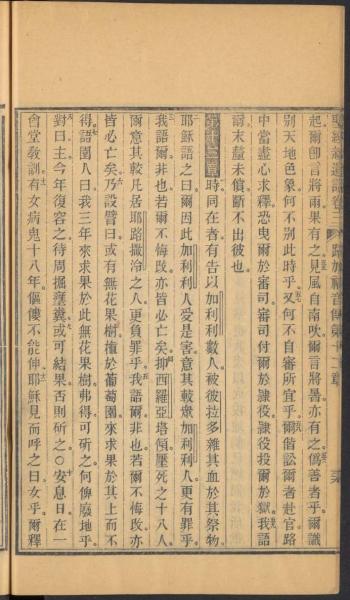 起爾卽言將雨果有之見風自南吹爾言將暑亦有之僞善者乎爾識
別天地色象何不別此時乎又何不自審所宜乎爾偕訟爾者赴官路
中當盡心求釋恐曳爾於審司審司付爾於隷役隷役投爾於獄我語
爾末釐未償斷不出彼也
第十三章時同在者有告以加利利數人被彼拉多雜其血於其祭物
耶穌語之曰爾因此加利利人受是害意其較衆加利利人更有罪乎
我語爾非也若爾不悔改亦皆必亡矣抑西羅亞塔傾壓死之十八人
爾意其較凡居耶路撒冷之人更負罪乎我語爾非也若爾不悔改亦
皆必亡矣乃設譬曰或有無花果樹植於葡萄園來求果於其上而不
得語園人曰我三年來求果於此無花果樹弗得可斫之何俾廢地乎
對曰主今年復容之待周掘壅糞或可結果否則斫之〇安息日在一
會堂敎訓有女病鬼十八年傴僂不能伸耶穌見而呼之曰女乎爾釋